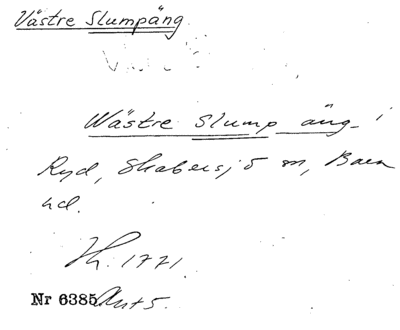 Västre Slumpäng
Wästre Slump äng
Ryd, Skabersjö m, Bara
hd.
1771.
Nr 6385